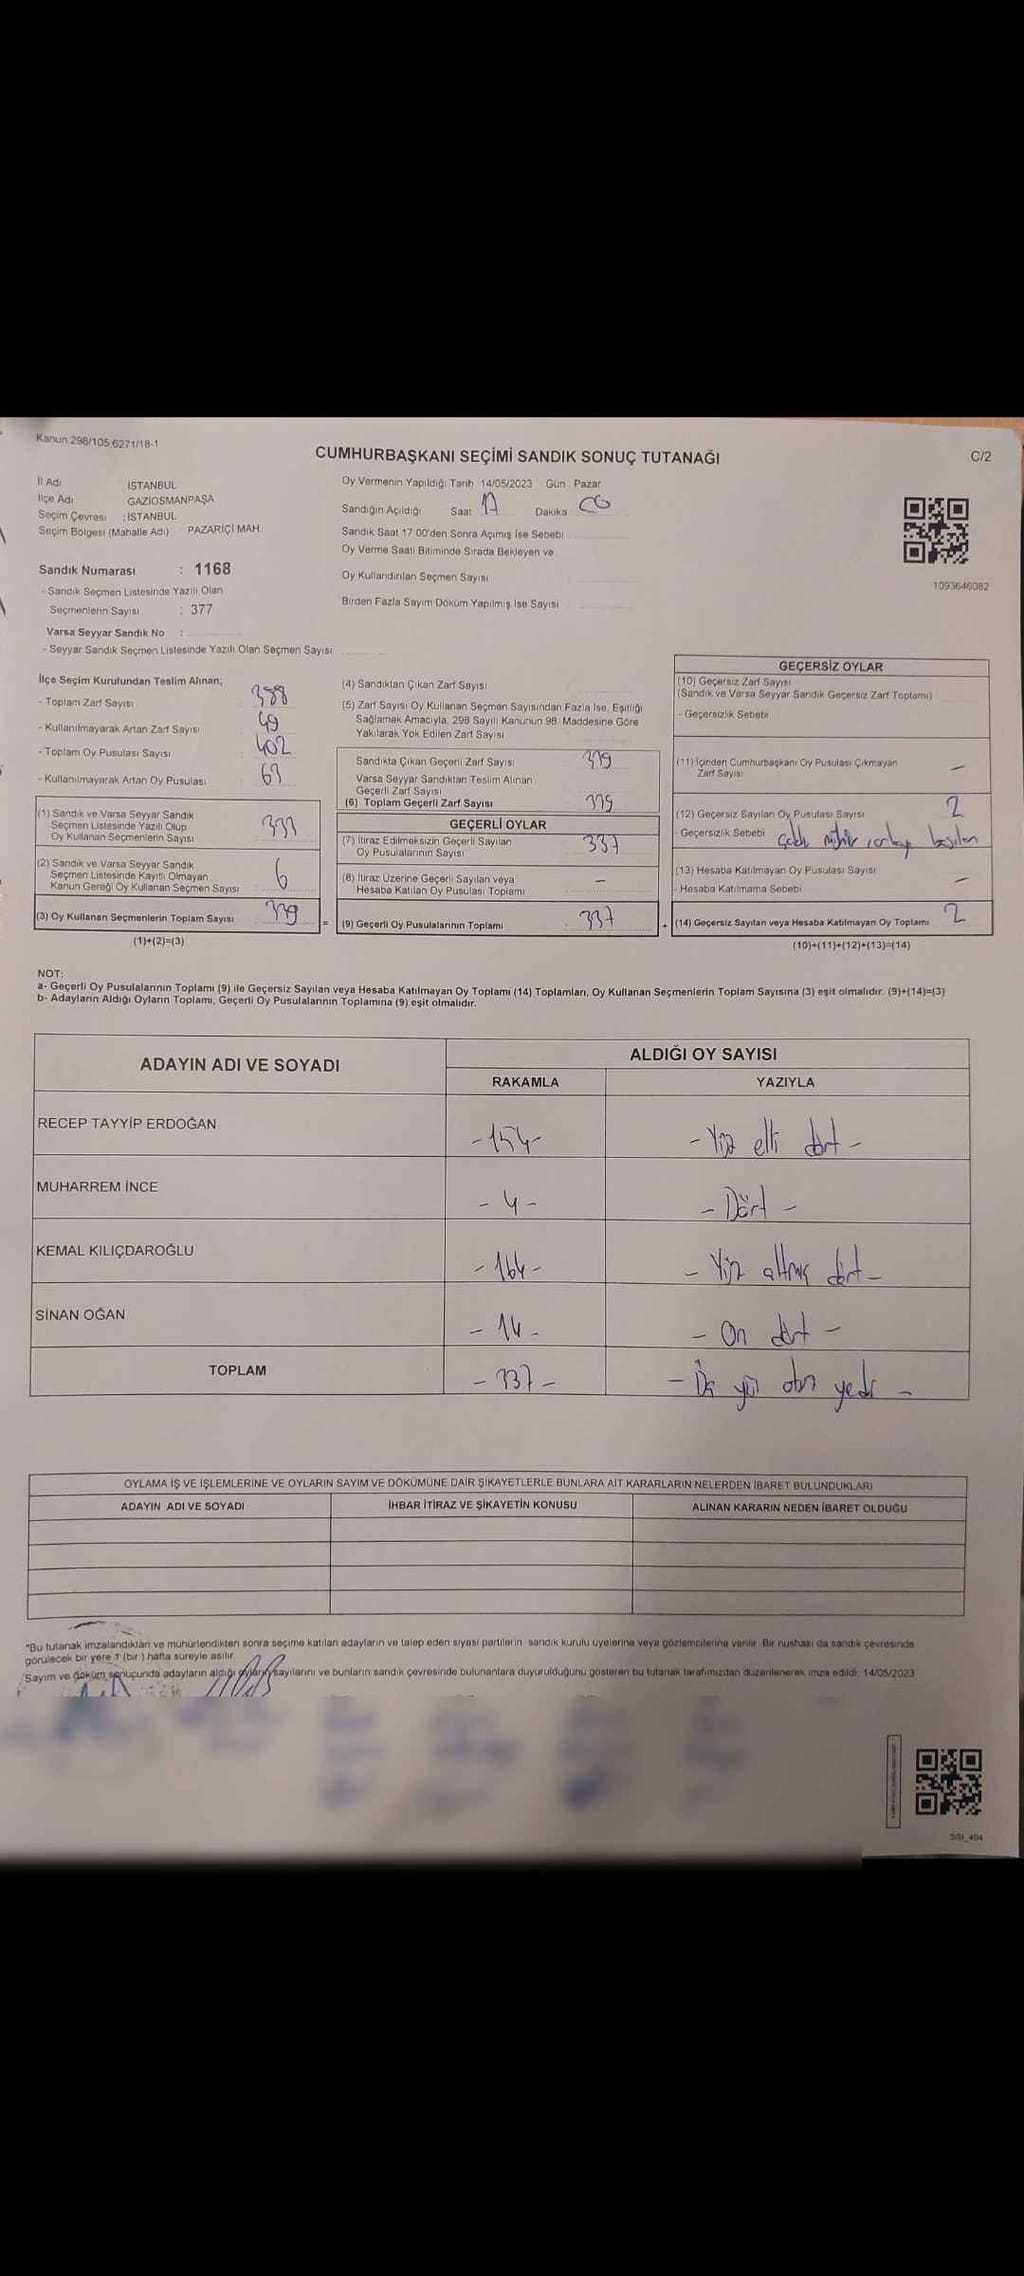 Kanun:298/105,6271/18-1
CUMHURBAŞKANI SEÇİMİ SANDIK SONUÇ TUTANAĞI
C/2
İl Adı İSTANBUL
İlçe Adı GAZİOSMANPAŞA
Seçim Çevresi : İSTANBUL
Seçim Bölgesi (Mahalle Adı) PAZARİÇİ MAH.
Sandık Numarası : 1168
- Sandık Seçmen Listesinde Yazılı Olan
Seçmenlerin Sayısı : 377
Varsa Seyyar Sandık No :
- Seyyar Sandık Seçmen Listesinde Yazılı Olan Seçmen Sayısı
Oy Vermenin Yapıldığı Tarih 14/05/2023 Gün Pazar
Sandığın Açıldığı Saat 17 Dakika 00
Sandık Saat 17:00'den Sonra Açımış İse Sebebi
Oy Verme Saati Bitiminde Sırada Bekleyen ve
Oy Kullandırılan Seçmen Sayısı
Birden Fazla Sayım Döküm Yapılmış İse Sayısı
1093646082
İlçe Seçim Kurulundan Teslim Alınan;
- Toplam Zarf Sayısı 388
- Kullanılmayarak Artan Zarf Sayısı 49
- Toplam Oy Pusulası Sayısı 402
- Kullanılmayarak Artan Oy Pusulası 63
(1) Sandık ve Varsa Seyyar Sandık
Seçmen Listesinde Yazılı Olup
Oy Kullanan Seçmenlerin Sayısı 333
(2) Sandık ve Varsa Seyyar Sandık
Seçmen Listesinde Kayıtlı Olmayan
Kanun Gereği Oy Kullanan Seçmen Sayısı 6
(3) Oy Kullanan Seçmenlerin Toplam Sayısı 339
(1)+(2)=(3)
=
(4) Sandıktan Çıkan Zarf Sayısı
(5) Zarf Sayısı Oy Kullanan Seçmen Sayısından Fazla İse, Eşitliği
Sağlamak Amacıyla, 298 Sayılı Kanunun 98. Maddesine Göre
Yakılarak Yok Edilen Zarf Sayısı
Sandıkta Çıkan Geçerli Zarf Sayısı 339
Varsa Seyyar Sandıktan Teslim Alınan
Geçerli Zarf Sayısı
(6) Toplam Geçerli Zarf Sayısı 339
GEÇERLİ OYLAR
(7) İtiraz Edilmeksizin Geçerli Sayılan
Oy Pusulalarının Sayısı 337
(8) İtiraz Üzerine Geçerli Sayılan veya
Hesaba Katılan Oy Pusulası Toplamı -
(9) Geçerli Oy Pusulalarının Toplamı 337
+
GEÇERSİZ OYLAR
(10) Geçersiz Zarf Sayısı
(Sandık ve Varsa Seyyar Sandık Geçersiz Zarf Toplamı)
- Geçersizlik Sebebi
(11) İçinden Cumhurbaşkanı Oy Pusulası Çıkmayan
Zarf Sayısı -
(12) Geçersiz Sayılan Oy Pusulası Sayısı 2
- Geçersizlik Sebebi
(13) Hesaba Katılmayan Oy Pusulası Sayısı -
- Hesaba Katılmama Sebebi
(14) Geçersiz Sayılan veya Hesaba Katılmayan Oy Toplamı 2
(10)+(11)+(12)+(13)=(14)
NOT:
a- Geçerli Oy Pusulalarının Toplamı (9) ile Geçersiz Sayılan veya Hesaba Katılmayan Oy Toplamı (14) Toplamları, Oy Kullanan Seçmenlerin Toplam Sayısına (3) eşit olmalıdır. (9)+(14)=(3)
b- Adayların Aldığı Oyların Toplamı, Geçerli Oy Pusulalarının Toplamına (9) eşit olmalıdır.
ADAYIN ADI VE SOYADI ALDIĞI OY SAYISI
RAKAMLA YAZIYLA
RECEP TAYYİP ERDOĞAN -154- - Yüz elli dört -
MUHARREM İNCE - 4 - - Dört -
KEMAL KILIÇDAROĞLU - 164 - - Yüz altmış dört -
SİNAN OĞAN - 14 - - On dört -
TOPLAM - 337 - - Üç yüz otuz yedi -
OYLAMA İŞ VE İŞLEMLERİNE VE OYLARIN SAYIM VE DÖKÜMÜNE DAİR ŞİKAYETLERLE BUNLARA AİT KARARLARIN NELERDEN İBARET BULUNDUKLARI
ADAYIN ADI VE SOYADI İHBAR İTİRAZ VE ŞİKAYETİN KONUSU ALINAN KARARIN NEDEN İBARET OLDUĞU
*Bu tutanak imzalandıktan ve mühürlendikten sonra seçime katılan adayların ve talep eden siyasi partilerin sandık kurulu üyelerine veya gözlemcilerine verilir. Bir nüshası da sandık çevresinde
görülecek bir yere 1 (bir ) hafta süreyle asılır.
Sayım ve döküm sonucunda adayların aldığı oyların sayılarını ve bunların sandık çevresinde bulunanlara duyurulduğunu gösteren bu tutanak tarafımızdan düzenlenerek imza edildi. 14/05/2023